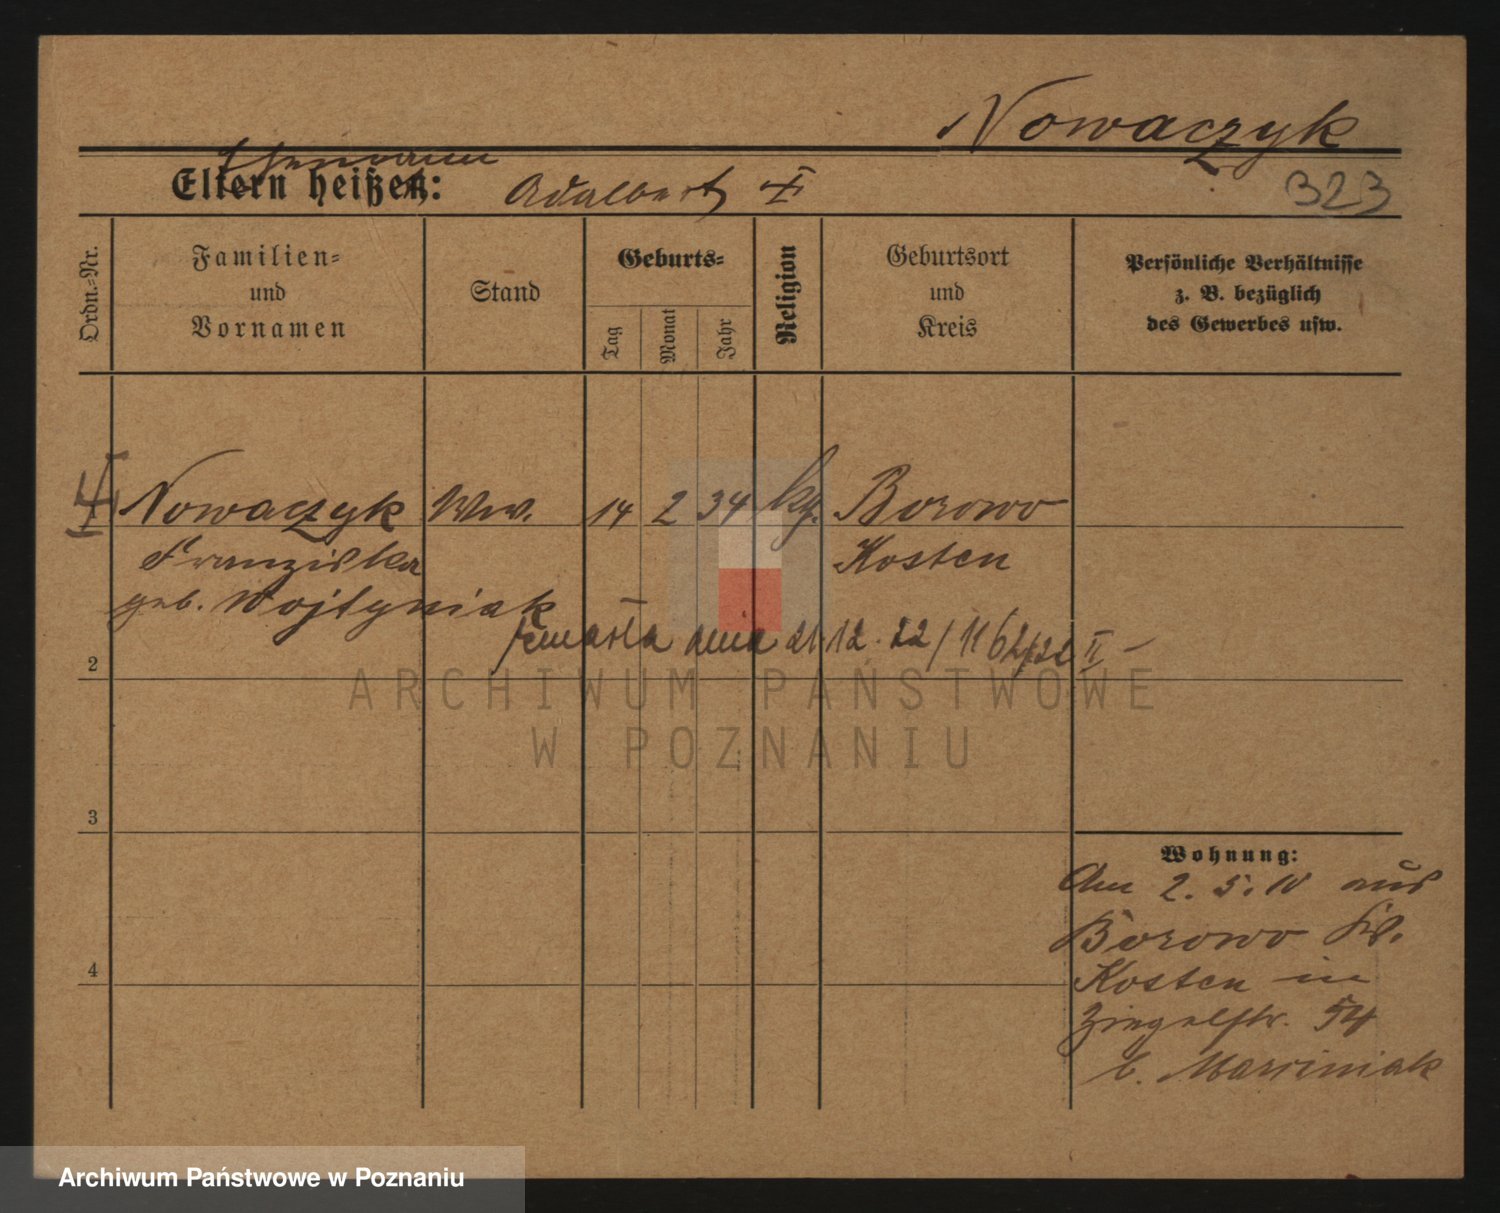 Nowaczyk
Ehemann
Eltern heißen: Adalbert
323
Ordn.=Nr.
Familien=
und
Vornamen
Stand
Geburts=
Tag
Monat
Jahr
Religion
Geburtsort
und
Kreis
Persönliche Verhältnisse
z. B. bezüglich
des Gewerbes usw.
Nowaczyk Ww. 14 2 34 kg. Borowo
Franziska Kosten
geb. Wojtyniak
zmarła dnia 21.12.22/1162/22 II
2
3
4
Wohnung:
Am 2.5.10 aus
Borowo Kr.
Kosten in
Ziegelstr. 54
b. Marciniak
ARCHIWUM PAŃSTWOWE
W POZNANIU
Archiwum Państwowe w Poznaniu